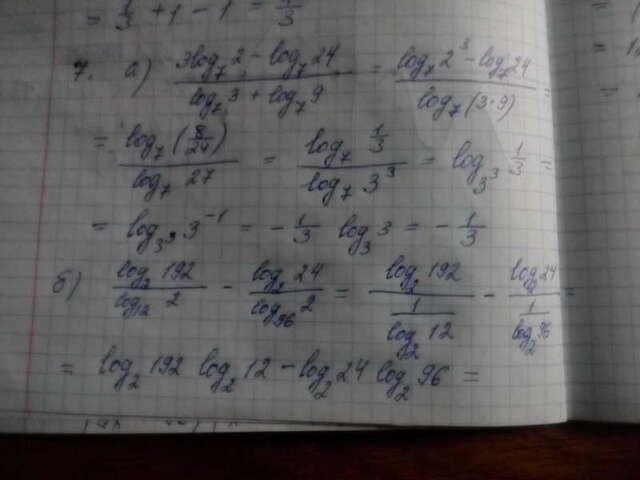 = 1/3 + 1 - 1 = 1/3
7. а) (3log₇2 - log₇24)/(log₇3 + log₇9) = (log₇2³ - log₇24)/(log₇(3·9)) =
= (log₇(8/24))/(log₇27) = (log₇ 1/3)/(log₇3³) = log₃³ 1/3 =
= log₃³ 3⁻¹ = - 1/3 log₃3 = - 1/3
б) (log₂192)/(log₁₂2) - (log₂24)/(log₉₆2) = (log₂192)/(1/(log₂12)) - (log₂24)/(1/(log₂96)) =
= log₂192 log₂12 - log₂24 log₂96 =